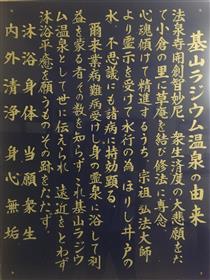 基山ラジウム温泉の由来
法泉寺開創智妙尼、衆生済度の大悲願をた
て小倉の里に草庵を結び修法に専念
心魂傾けて精進するうち、宗祖弘法大師
より霊示を受けて水行の為ほりし井戸の
水不思議にも諸病に特効顕る
爾来業病難病受けし身の霊泉に浴して利
益を蒙る者その数を知らず これ基山ラジウ
ム温泉として世に伝えられ 遠近をとわず
沐浴平癒を願うものその跡をたたず。
沐浴身体 当願衆生
内外清浄 身心無垢